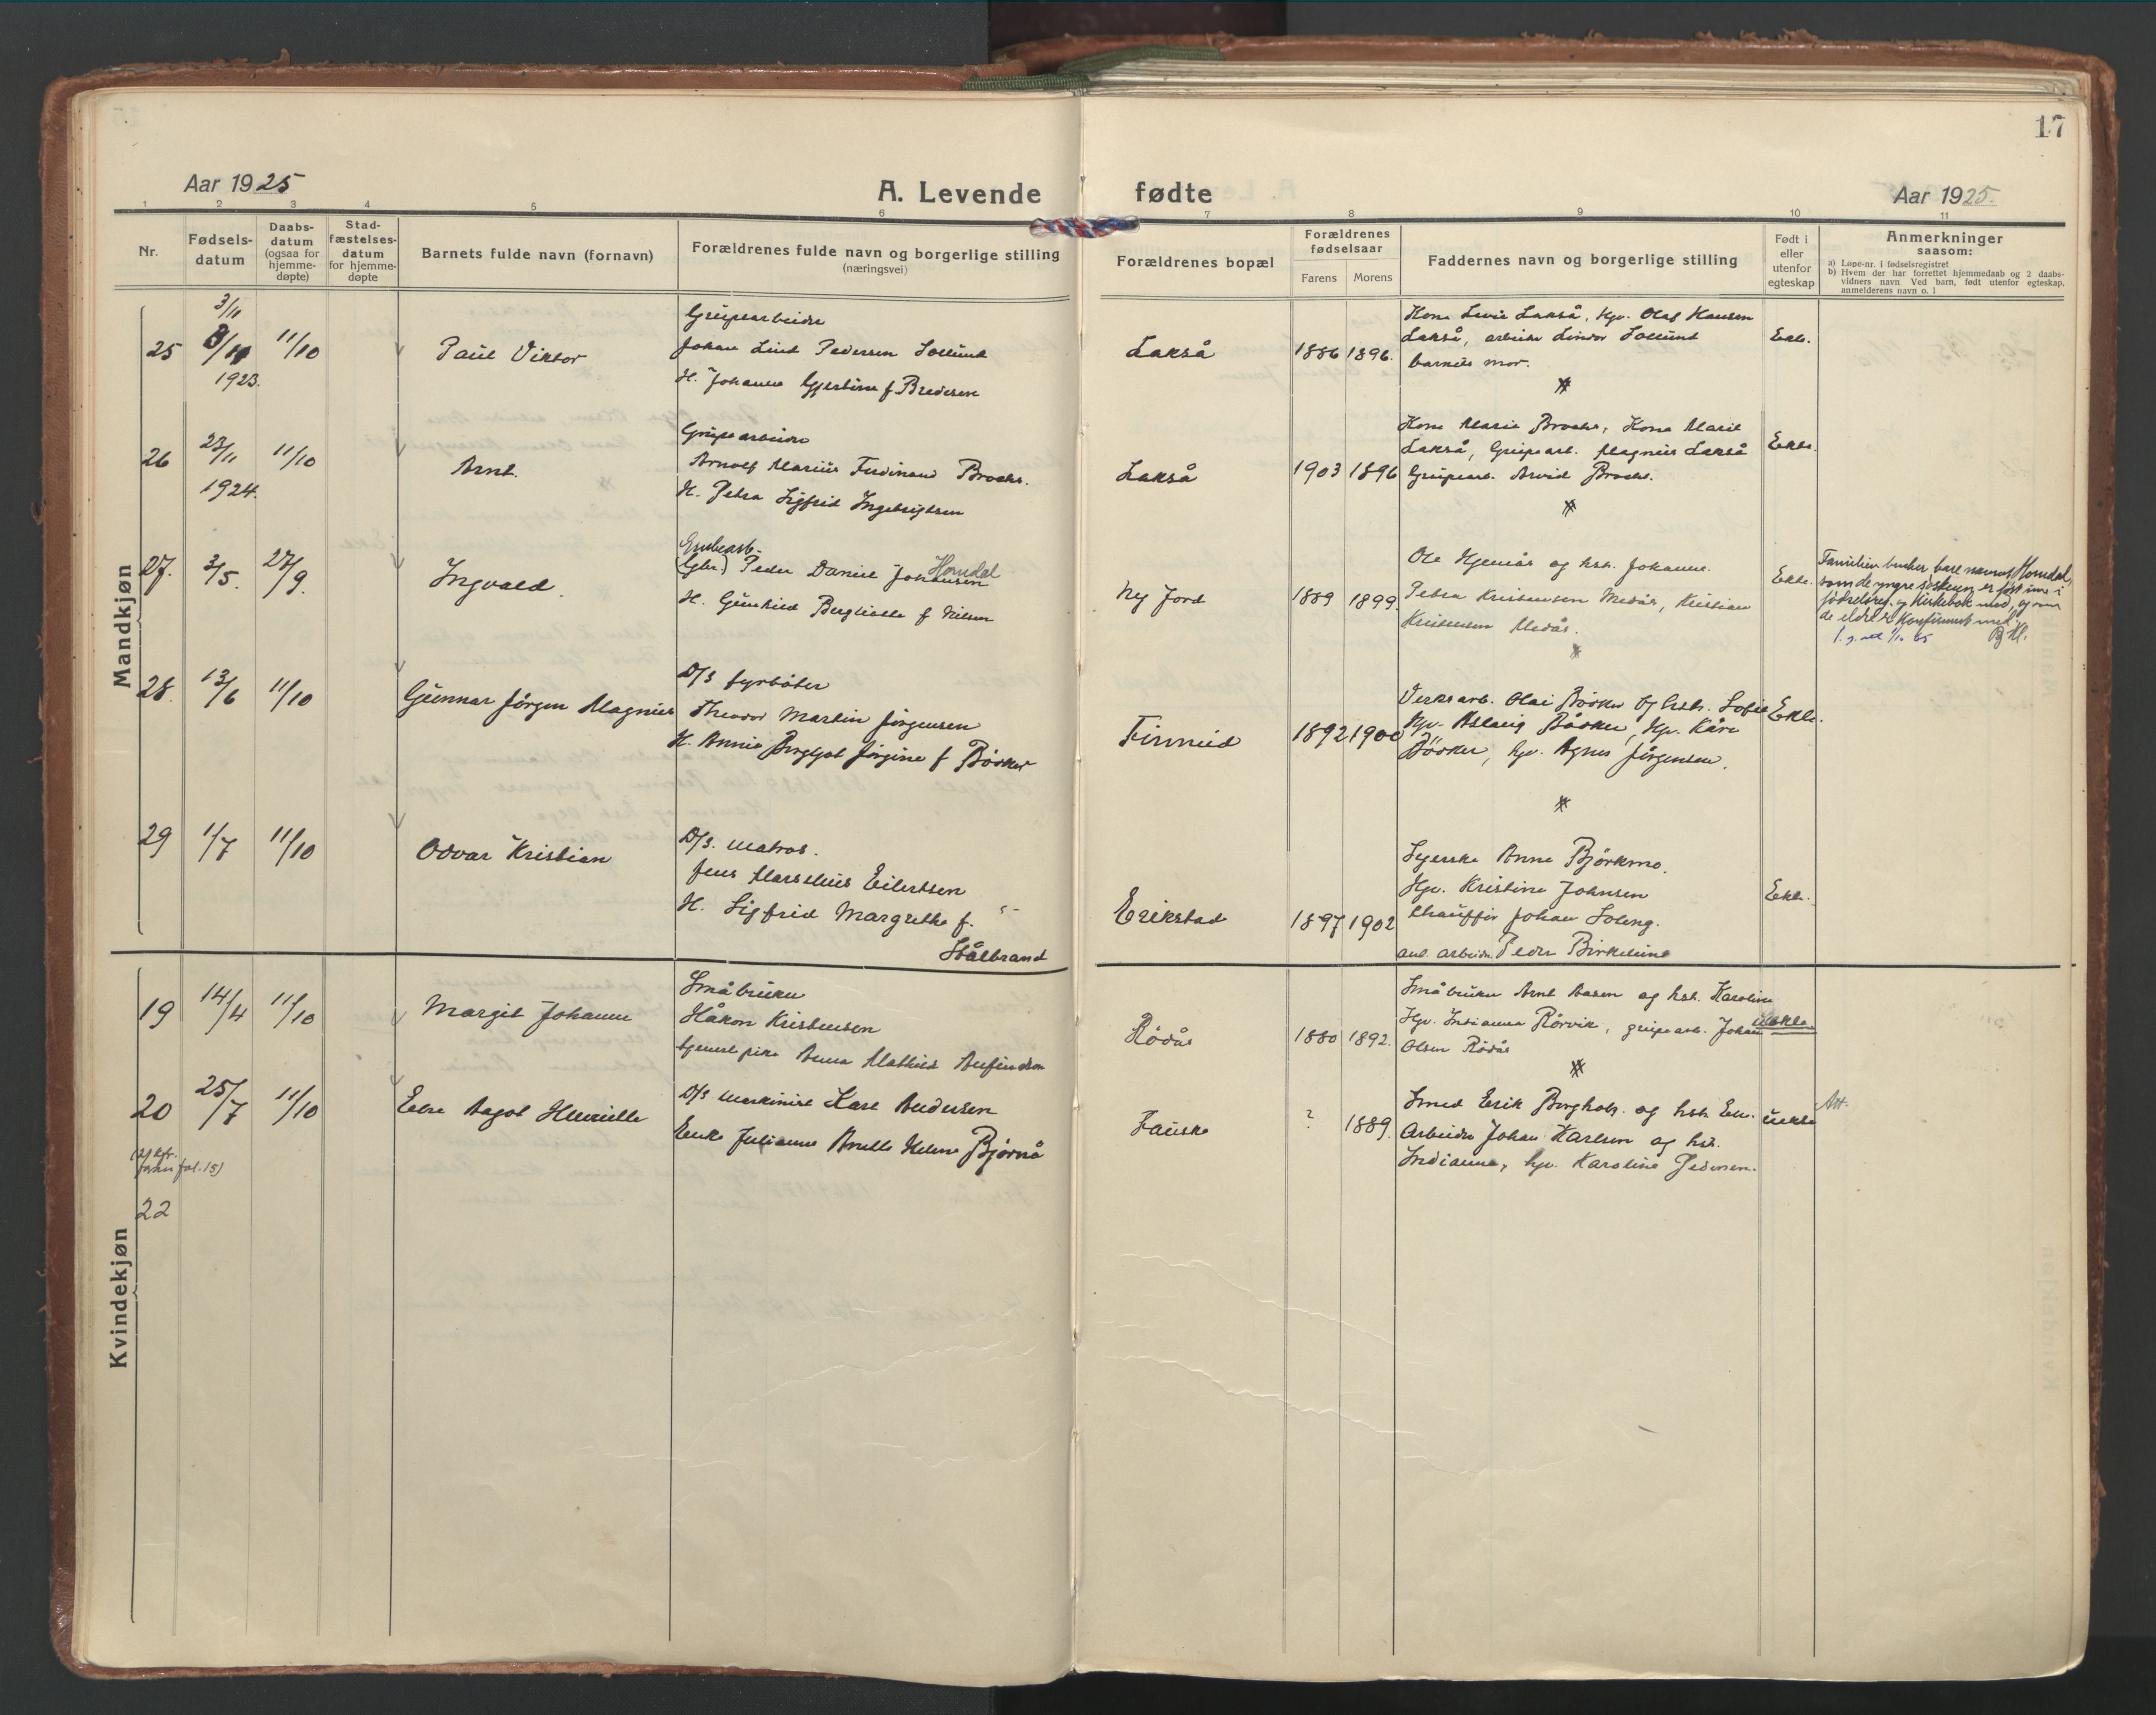 17
Aar 1925
A. Levende fødte
Aar 1925.
1 2 3 4 5 6 7 8 9 10 11
Nr.
Fødsels-
datum
Daabs-
datum
(ogsaa for
hjemme-
døpte)
Stad-
fæstelses-
datum
for hjemme-
døpte
Barnets fulde navn (fornavn)
Forældrenes fulde navn og borgerlige stilling
(næringsvei)
Forældrenes bopæl
Forældrenes
fødselsaar
Farens Morens
Faddernes navn og borgerlige stilling
Født i
eller
utenfor
egteskap
Anmerkninger
saasom:
a) Løpe-nr. i fødselsregistret
b) Hvem der har forrettet hjemmedaab og 2 daabs-
vidners navn. Ved barn, født utenfor egteskap,
anmelderens navn o. l
Mandkjøn
3/11
25 11/10 Paul Viktor
1923.
Grubearbeider
Johan Lind Pedersen Sollund
H. Johanne Gjertine f. Bredesen
Lakså 1886 1896.
Kona Lakså, Gp. Olaf Hansen
Lakså, arbeider Lindor Sollund
barnets mor.
Ekte.
26 23/11 11/10 Arnt.
1924.
Grubearbeider
Arnolf Marius Ferdinand Brochs.
H. Petra Sigfrid Ingebrigtsen
Lakså 1903 1896
Kona Marie Brochs, Kona Marie
Lakså, Grubearb. Magnus Lakså
Grubearb. Arvid Brochs.
Ekte.
27. 3/5. 27/9. Ingvald.
Grubearb.
(Gbr) Peder Daniel Johansen Horndal
H. Gunhild Bergliotte f Nilsen
Ny Jord 1889 1899.
Ole Hjemås og hst. Johanne.
Petra Kristensen Medås, Kristian
Kristensen Medås.
Ekte.
Familien bruker bare navnet Horndal,
som de yngre søsken er ført inn i
fødselsreg. og Kirkebok med, og som
de eldre er Konfirmert med.
28. 13/6 11/10 Gunnar Jörgen Magnus
D/S fyrböter
Theodor Martin Jörgensen
H. Annie Bergljot Jörgine f Böoker
Finneid 1892 1900
Verksarb. Olai Böoker og hst. Sofie
Gp. Aslaug Böoker, Gp. Kåre
Böoker, Gp. Agnes Jörgensen.
Ekte.
29 1/7 11/10 Odvar Kristian
D/S. Matros.
Jens Marselius Eilertsen
H. Sigfrid Margrethe f.
Stålbrand
Erikstad 1897 1902
Syerske Anna Björkmo.
Gp. Kristine Johnsen
Chaufför Johan Soleng.
anl. arbeider Peder Birkelund
Ekte.
Kvindekjøn
19 14/4 11/10 Margit Johanne
Småbruker
Håkon Kristensen
tjenestpike Anna Mathilde Anfindsen
Rödås 1880 1892.
Småbruker Arnt Aasen og hst. Karoline
Gp. Indianna Rörvik, grubearb. Johan
Olsen Rödås
Uekte
20 25/7 11/10 Else Aagot Henriette
D/S maskinist Karl Andersen
Enke Julianne Anette Helene Björnå
Fauske ? 1889.
Smed Erik Bergholt. og hst. Ell.
Arbeider Johan Karlsen og hst.
Indianna, Gp. Karoline Pedersen.
Uekte
Att.
(21) kfr.
foran fol. 15)
22